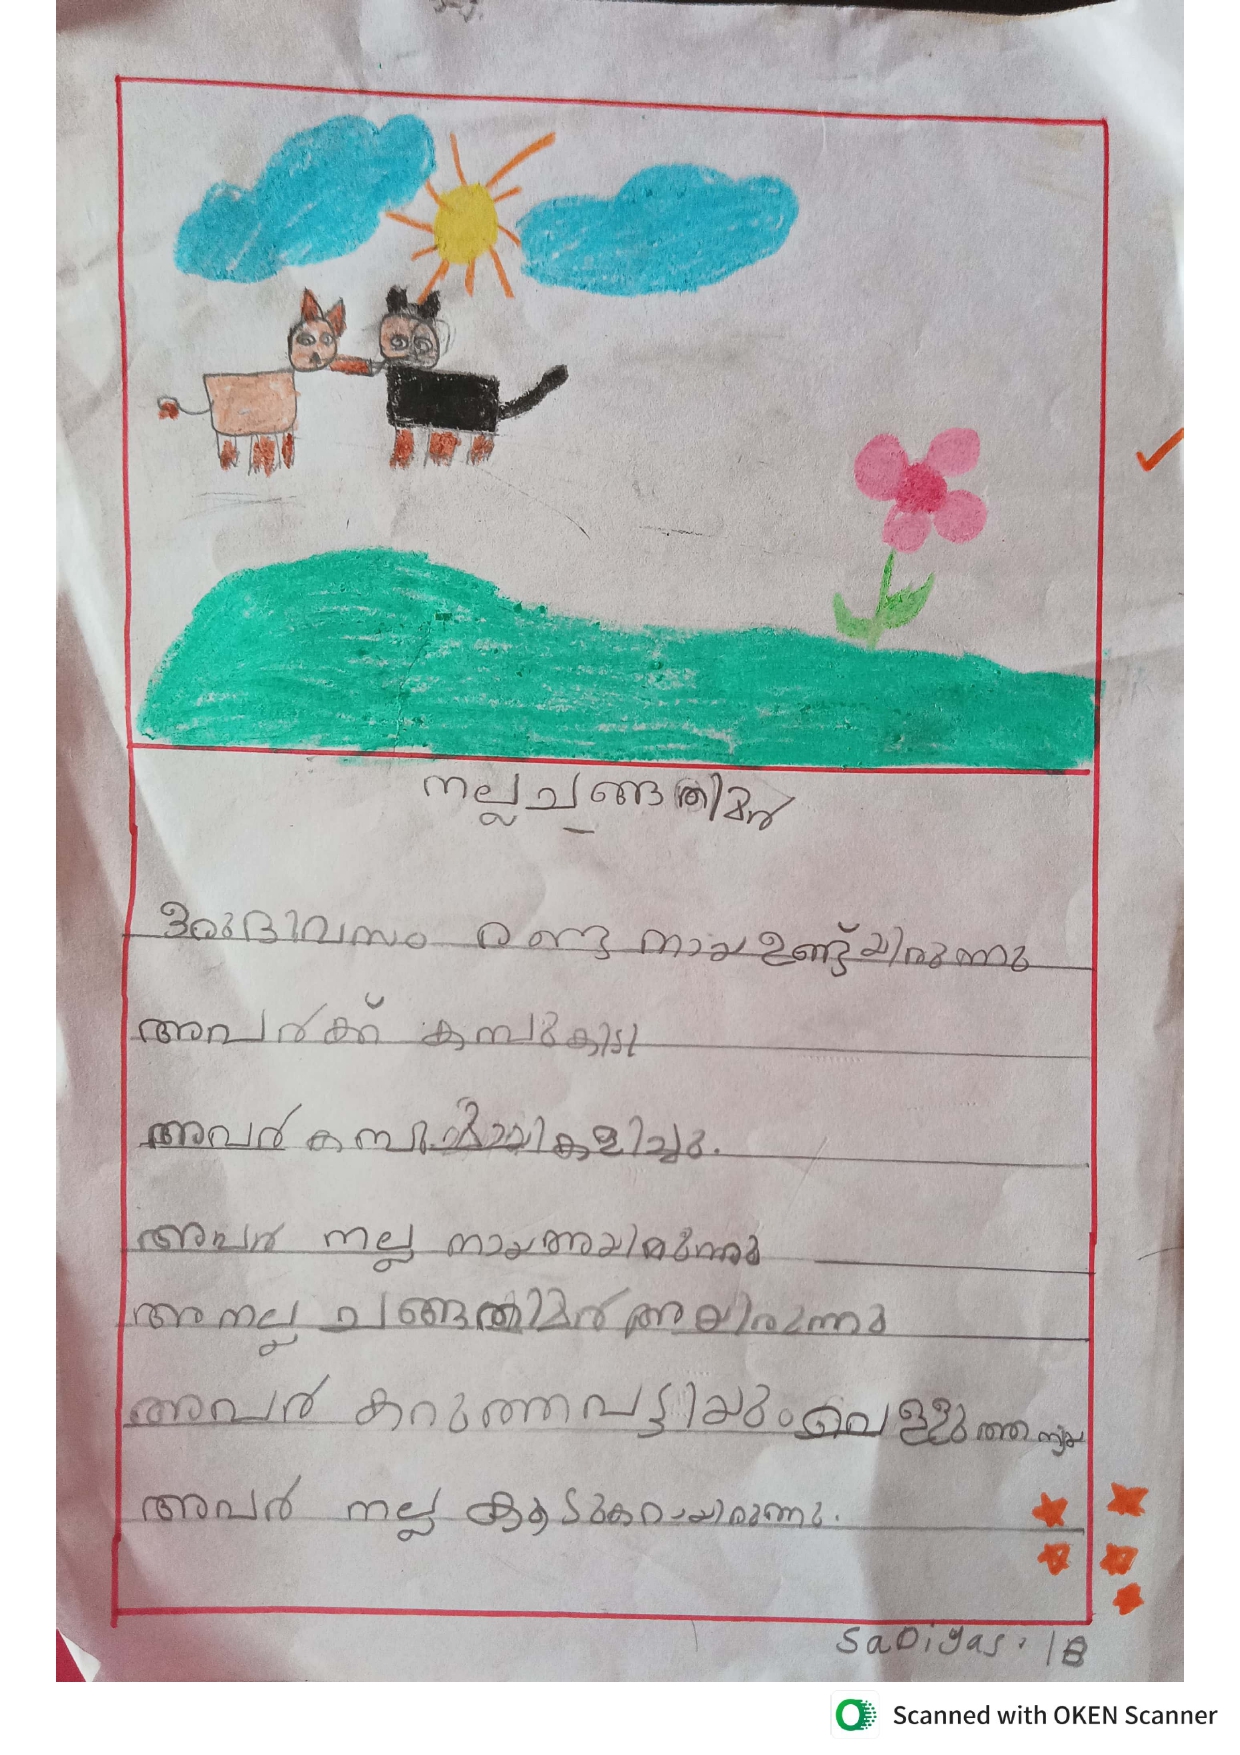 നല്ല ചങ്ങതിമൻ
ഒരുദിവസം രണ്ടു നായ ഉണ്ട്യിരുന്നു
അവർക്ക് കമ്പുകിട്ടി
അവർ കളിച്ചു.
അവർ നല്ല നായഅയിരുന്നു
അ നല്ല ചങ്ങതിമൻ അയിരുന്നു
അവർ കറുത്ത പട്ടിയും വെള്ളുത്ത
അവർ നല്ല കൂടുകറായിരുന്നു.
Sadiyas. 1B
Scanned with OKEN Scanner